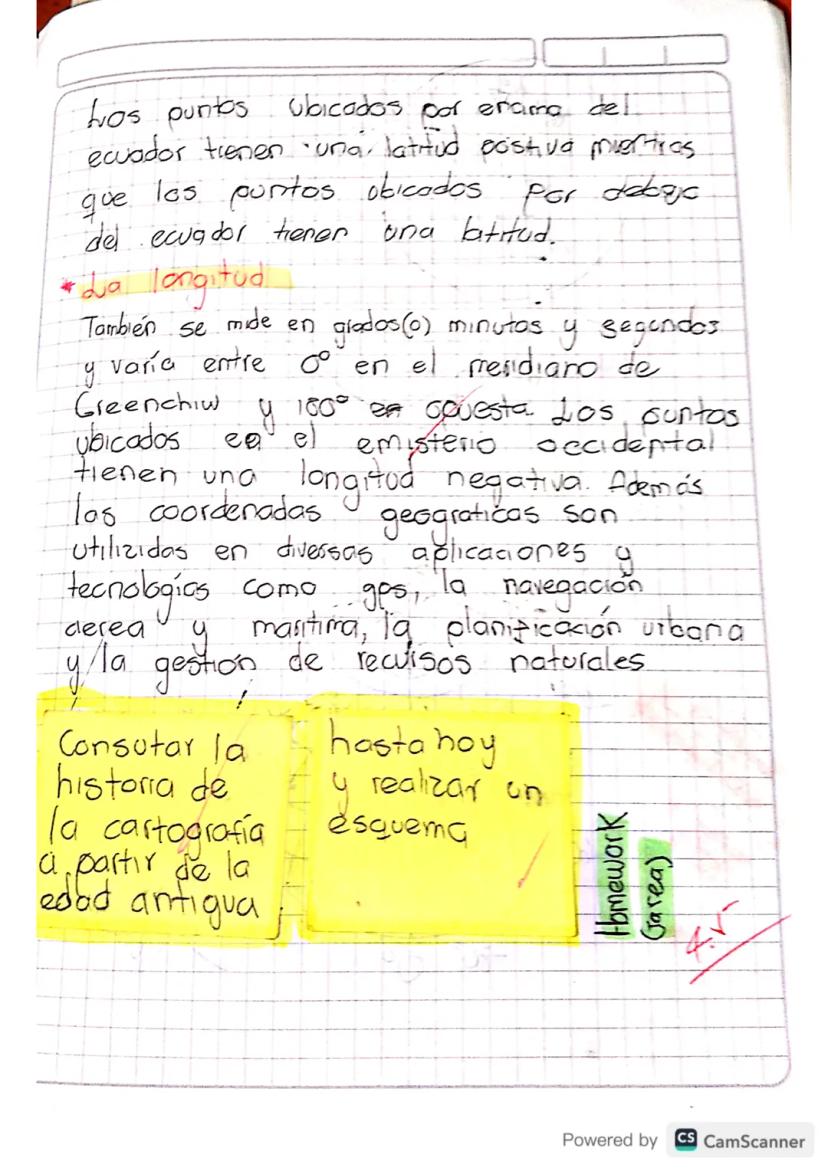 Los puntos ubicados por enama del
ecuador tienen una latitud postiva mientras
que los puntos ubicados por debajo
del ecuador tienen una latitud.
* La longitud
También se mide en grados(o) minutos y segundos
y varía entre 0° en el meridiano de
Greenchiw y 180° en opuesta Los puntos
ubicados en el emisterio occidental
tienen una longitud negativa. Además
las coordenadas geograticas son
utilizidas en diversas aplicaciones y
tecnologías como gps, la navegación
aerea y maritima, la planificación urbana
y la gestion de recursos naturales
Consutar la
historia de
la cartografía
a partir de la
edad antigua
hasta hoy
y realizar un
esquema
Homework
(area)
4.5
Powered by CS CamScanner